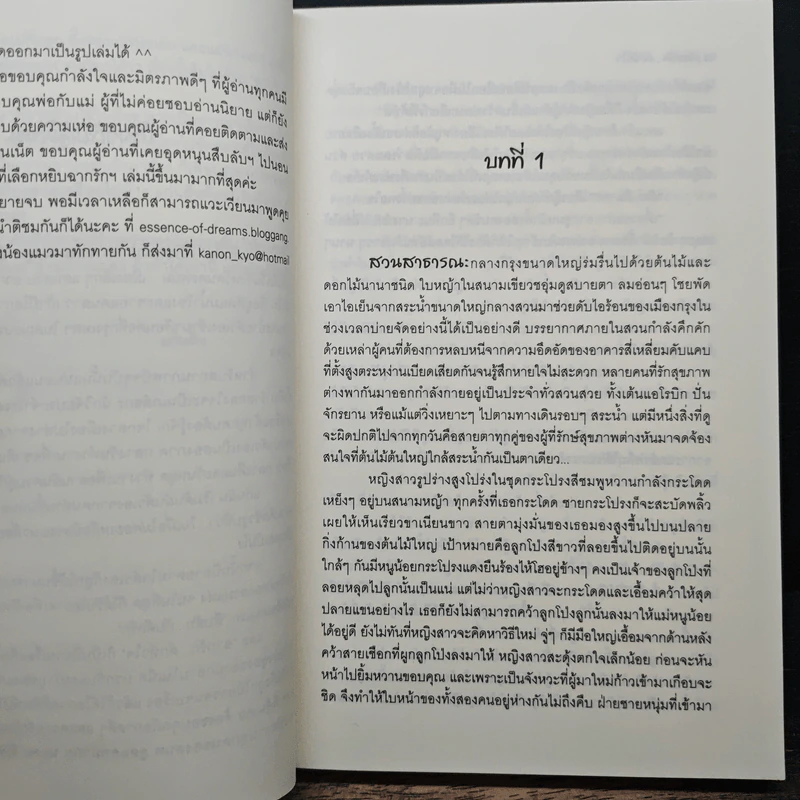 ดออกมาเป็นรูปเล่มได้ ^^
อขอบคุณกำลังใจและมิตรภาพดีๆ ที่ผู้อ่านทุกคนมี
บคุณพ่อกับแม่ ผู้ที่ไม่ค่อยชอบอ่านนิยาย แต่ก็ยัง
บด้วยความเห่อ ขอบคุณผู้อ่านที่คอยติดตามและส่ง
นเน็ต ขอบคุณผู้อ่านที่เคยอุดหนุนสืบลับฯ ไปนอน
ที่เลือกหยิบฉากรักฯ เล่มนี้ขึ้นมามากที่สุดค่ะ
ยายจบ พอมีเวลาเหลือก็สามารถแวะเวียนมาพูดคุย
นำติชมกันก็ได้นะคะ ที่ essence-of-dreams.bloggang.
งน้องแมวมาทักทายกัน ก็ส่งมาที่ kanon_kyo@hotmail
บทที่ 1
สวนสาธารณะกลางกรุงขนาดใหญ่ร่มรื่นไปด้วยต้นไม้และ
ดอกไม้นานาชนิด ใบหญ้าในสนามเขียวชอุ่มดูสบายตา ลมอ่อนๆ โชยพัด
เอาไอเย็นจากสระน้ำขนาดใหญ่กลางสวนมาช่วยดับไอร้อนของเมืองกรุงใน
ช่วงเวลาบ่ายจัดอย่างนี้ได้เป็นอย่างดี บรรยากาศภายในสวนกำลังคึกคัก
ด้วยเหล่าผู้คนที่ต้องการหลบหนีจากความอึดอัดของอาคารสี่เหลี่ยมคับแคบ
ที่ตั้งสูงตระหง่านเบียดเสียดกันจนรู้สึกหายใจไม่สะดวก หลายคนที่รักสุขภาพ
ต่างพากันมาออกกำลังกายอยู่เป็นประจำทั่วสวนสวย ทั้งเต้นแอโรบิก ปั่น
จักรยาน หรือแม้แต่วิ่งเหยาะๆ ไปตามทางเดินรอบๆ สระน้ำ แต่มีหนึ่งสิ่งที่ดู
จะผิดปกติไปจากทุกวันคือสายตาทุกคู่ของผู้ที่รักษ์สุขภาพต่างหันมาจดจ้อง
สนใจที่ต้นไม้ต้นใหญ่ใกล้สระน้ำกันเป็นตาเดียว...
หญิงสาวรูปร่างสูงโปร่งในชุดกระโปรงสีชมพูหวานกำลังกระโดด
เหยิงๆ อยู่บนสนามหญ้า ทุกครั้งที่เธอกระโดด ชายกระโปรงก็จะสะบัดพลิ้ว
เผยให้เห็นเรียวขาเนียนขาว สายตามุ่งมั่นของเธอมองสูงขึ้นไปบนปลาย
กิ่งก้านของต้นไม้ใหญ่ เป้าหมายคือลูกโป่งสีขาวที่ลอยขึ้นไปติดอยู่บนนั้น
ใกล้ๆ กันมีหนูน้อยกระโปรงแดงยืนร้องไห้โฮอยู่ข้างๆ คงเป็นเจ้าของลูกโป่งที่
ลอยหลุดไปลูกนั้นเป็นแน่ แต่ไม่ว่าหญิงสาวจะกระโดดและเอื้อมคว้าให้สุด
ปลายแขนอย่างไร เธอก็ยังไม่สามารถคว้าลูกโป่งลูกนั้นลงมาให้แม่หนูน้อย
ได้อยู่ดี ยังไม่ทันที่หญิงสาวจะคิดหาวิธีใหม่ จู่ๆ ก็มีมือใหญ่เอื้อมจากด้านหลัง
คว้าสายเชือกที่ผูกลูกโป่งลงมาให้ หญิงสาวสะดุ้งตกใจเล็กน้อย ก่อนจะหัน
หน้าไปยิ้มหวานขอบคุณ และเพราะเป็นจังหวะที่ผู้มาใหม่ก้าวเข้ามาเกือบจะ
ชิด จึงทำให้ใบหน้าของทั้งสองคนอยู่ห่างกันไม่ถึงคืบ ฝ่ายชายหนุ่มที่เข้ามา